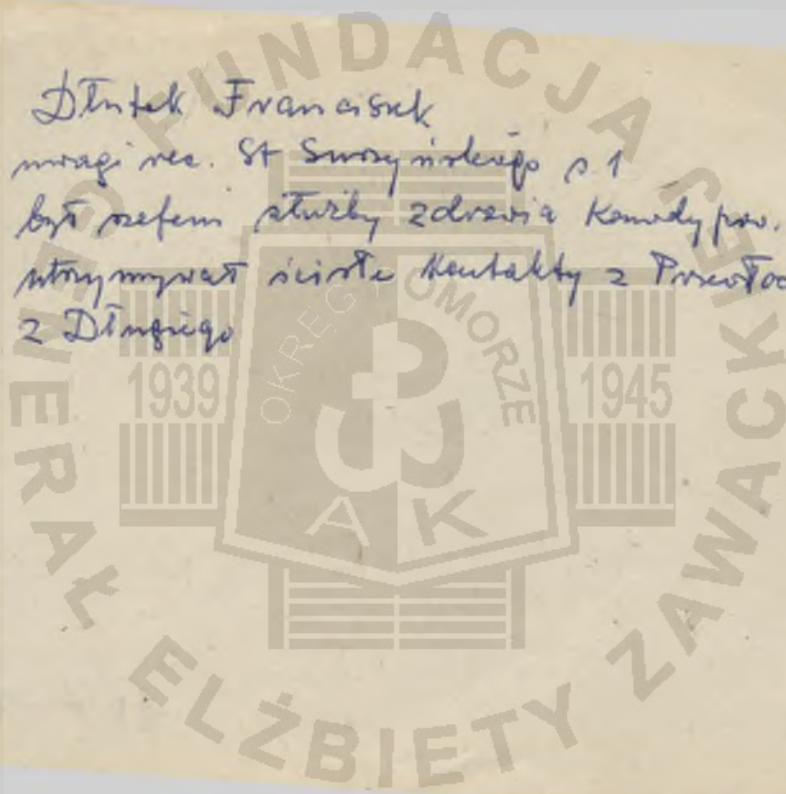 Dłutek Franciszek
uwagi rec. St Surozyńskiego s. 1
był szefem służby zdrowia Komedy pow.
utrzymywał ścisłe kontakty z
z Długiego
FUNDACJA
GENERAŁ ELŻBIETY ZAWACKIEJ
OKRĘG POMORZE
1939 1945
AK